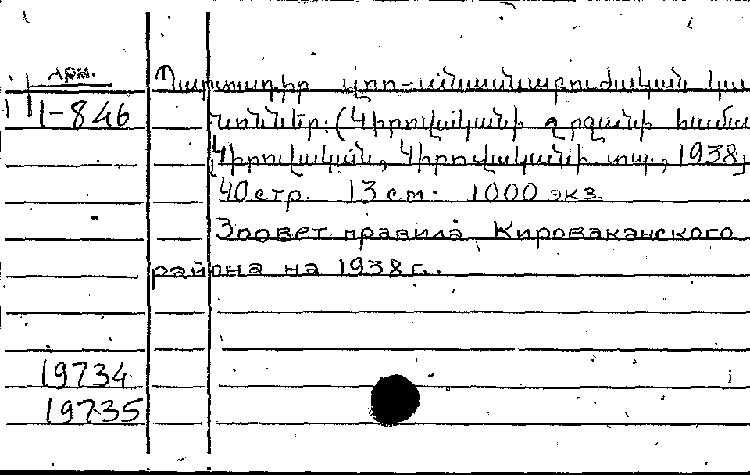 Арм.
Պարտադիր զոո-անասնաբուժական կա
1-846 նոններ: (Կիրովականի շրջանի համա
Կիրովական, Կիրովականի տպ., 1938,
40 стр. 13 см. 1000 экз.
Зоовет правила Кироваканского
района на 1938 г..
19734
19735